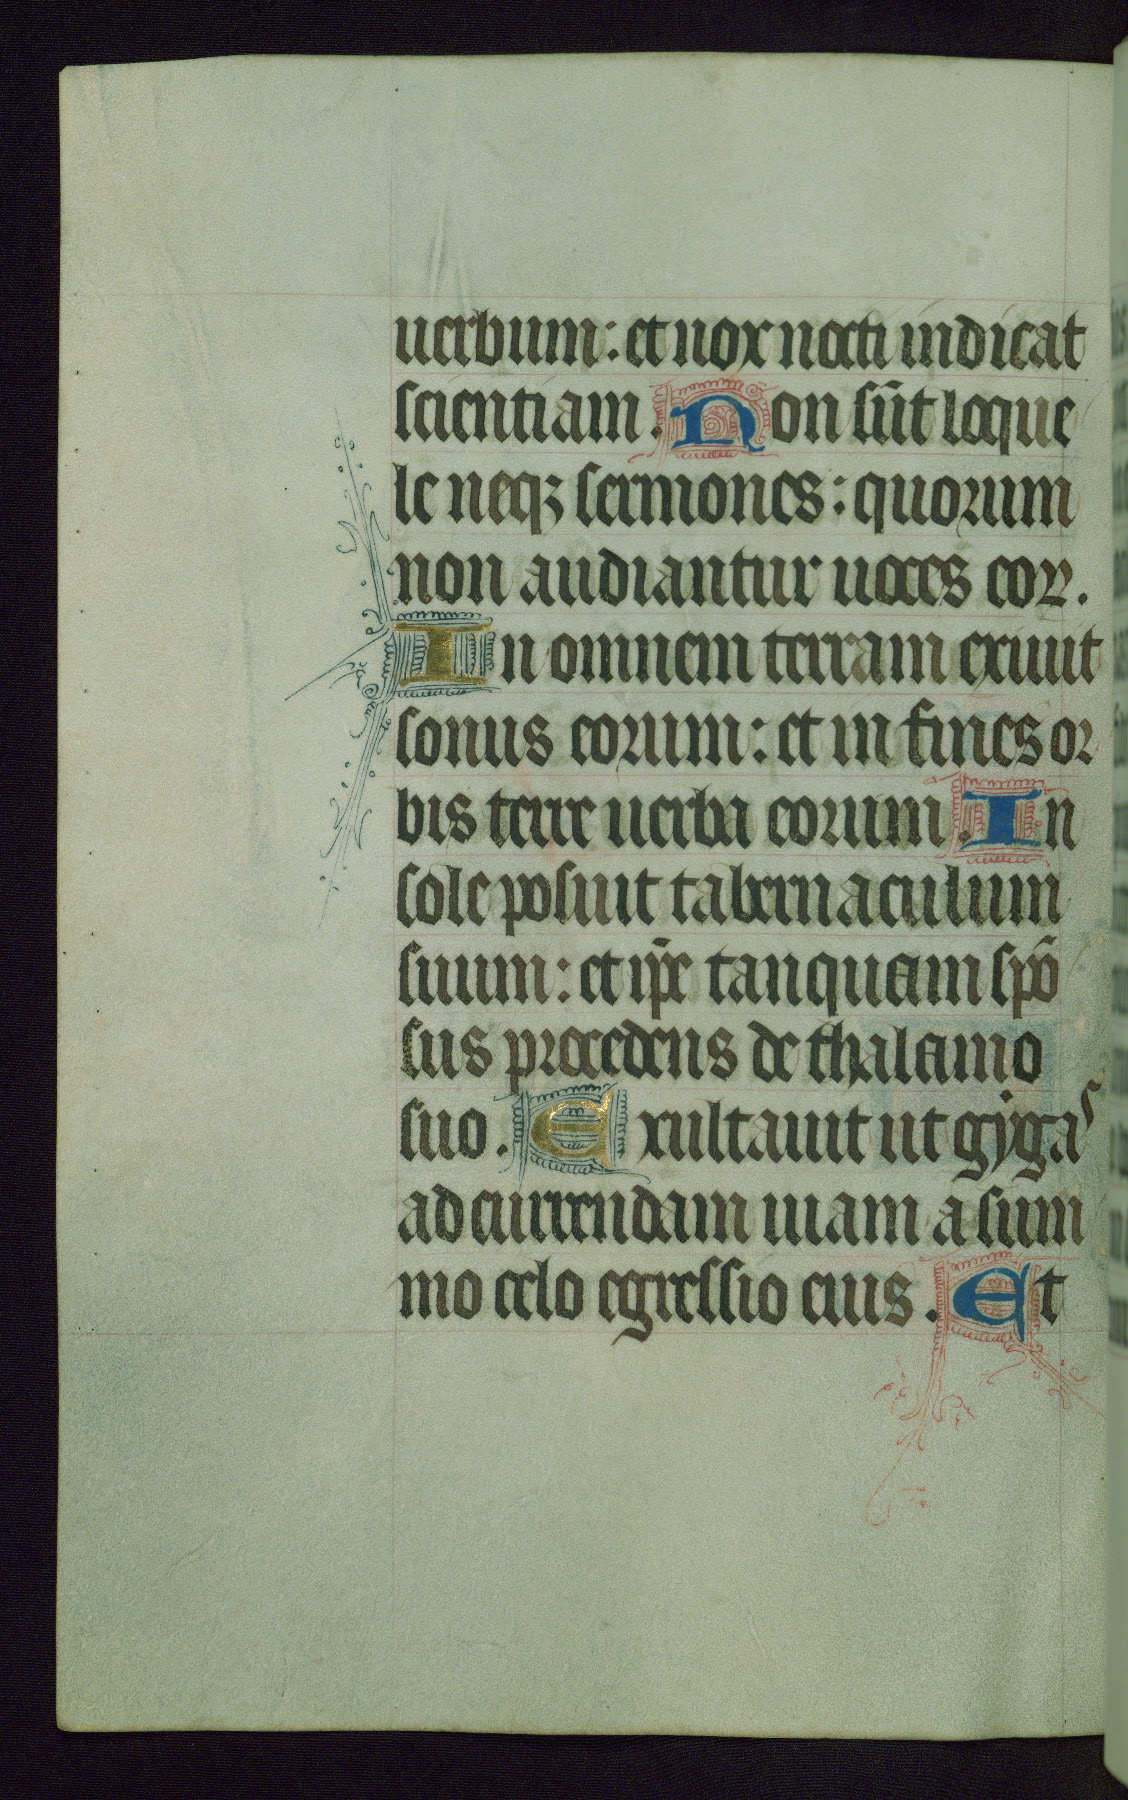 uerbum: et nox nocti indicat
scientiam. Non sūt loque
le neqꝫ sermones: quorum
non audiantur uoces eoꝝ.
In omnem terram exiuit
sonus eorum: et in fines or
bis terre uerba eorum. In
sole posuit tabernaculum
suum: et ip̄e tanquam spō
sus procedens de thalamo
suo. Exultauit ut gẏgas
ad currendam uiam a sum
mo celo egressio eius. Et